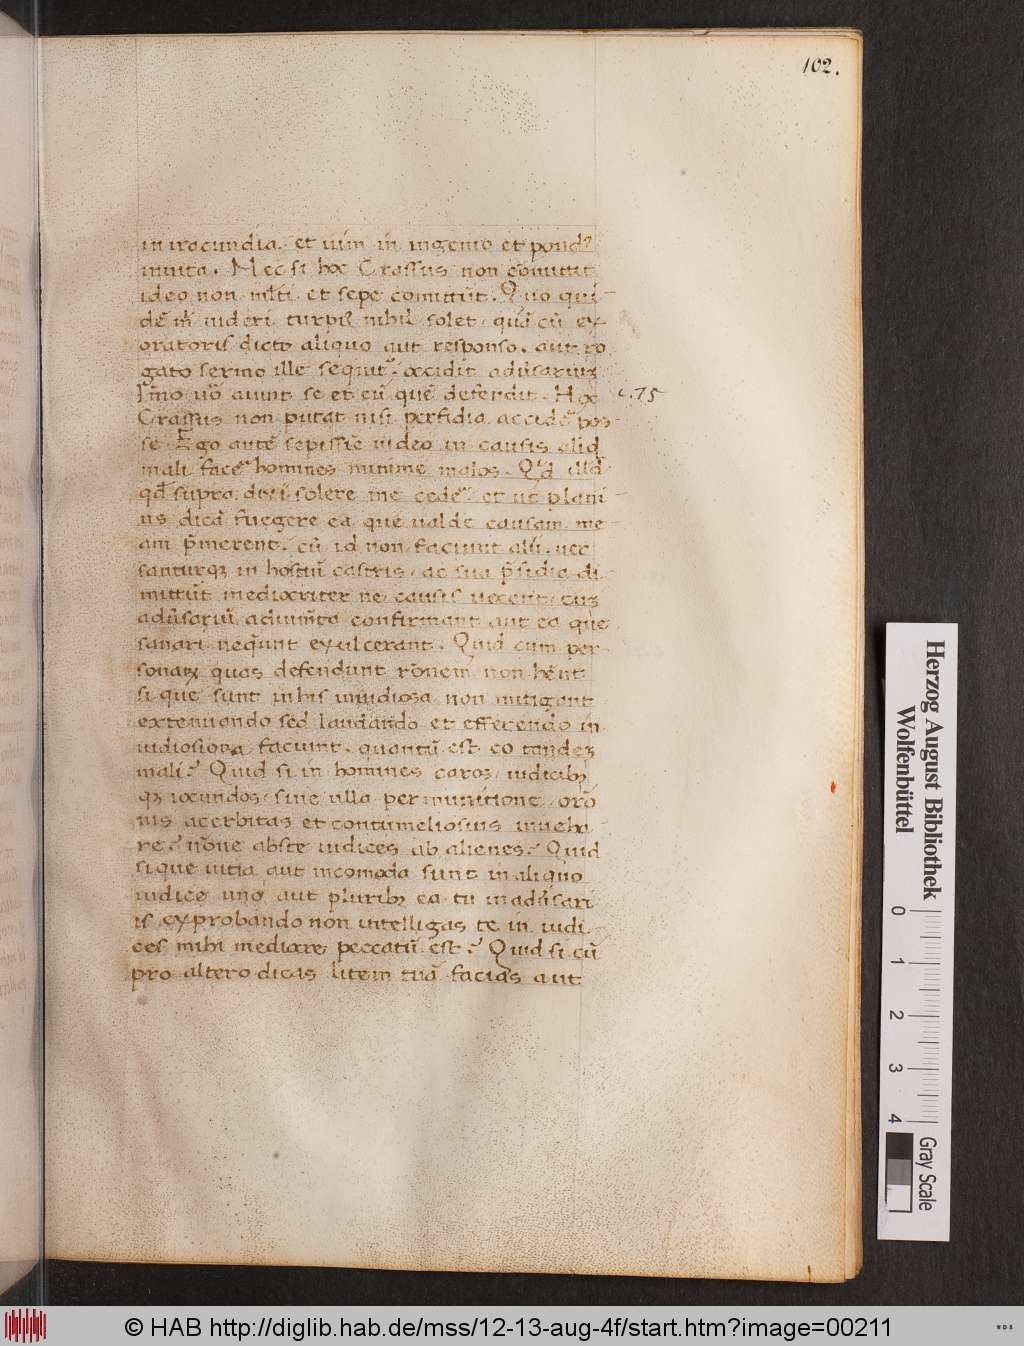 102.
in iracundia. et uim in ingenio et pondꝰ
in uita. Nec si hoc Crassus non cōmittit
ideo non ml̄ti et sepe comittūt. Quo qui-
dē m̄ uideri turpiꝰ nihil solet, quā cū ex
oratoris dicto aliquo aut responso. aut ro
gato sermo ille sequitꝰ. occidit adūsariuꝫ
Īmo uō aiunt se et eū quē defendit. Hoc
c. 75
Crassus non putat nisi perfidia accidē pos-
se. Ego autē sepissīe uideo in causis aliqͥd
mali facē homines minime malos. Qͥd illd̄
qd̄ supra dixi solere me cedē. et ut plani-
us dicā fuegere ea que ualde causam me-
am p̄merent. cū id non faciunt alii. uer
santurqꝫ in hostiū castris, ac sua p̄sidia di
mittūt mediocriter ne causis nocent, cuꝫ
adūsariū adium̄ta confirmant aut ea que
sanari neqūnt exulcerant. Quid cum per-
sonaꝝ quas defendunt rōnem non hēnt
si que sunt in his inuidiosa non mitigant
extenuando sed laudando et efferendo in
uidiosiora faciunt. quantū est eo tandeꝫ
mali? Quid si in homines caros, iudicibꝫ
qꝫ iocundos, sine ulla permunitione, orō
nis acerbitas et contumeliosius inueha
re? nōne abs te iudices ab alienes? Quid
si que uitia aut incomoda sunt in aliquo
iudice uno aut pluribꝫ ea tu in adūsari
is exprobando non intelligas te in iudi
ces inihi mediocre peccatū est? Quid si cū
pro altero dicas litem tuā facias aut
Herzog August Bibliothek
Wolfenbüttel
0
1
2
3
4
Gray Scale
© HAB http://diglib.hab.de/mss/12-13-aug-4f/start.htm?image=00211